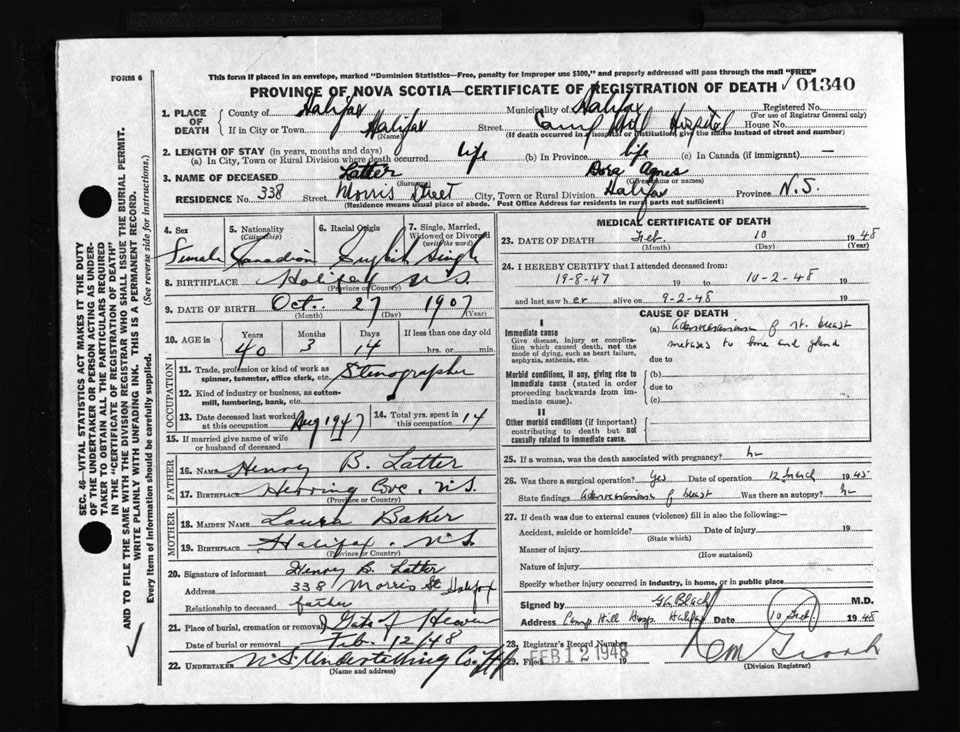 This form if placed in an envelope, marked "Dominion Statistics—Free, penalty for improper use $300," and properly addressed will pass through the mail "FREE"
FORM 6
PROVINCE OF NOVA SCOTIA—CERTIFICATE OF REGISTRATION OF DEATH 01340
1. PLACE OF DEATH County of Halifax Municipality of Halifax Registered No. (For use of Registrar General only)
If in City or Town Halifax (Name) Street Camp Hill Hospital House No.
(If death occurred in a hospital or institution, give the name instead of street and number)
2. LENGTH OF STAY (in years, months and days)
(a) In City, Town or Rural Division where death occurred life (b) In Province life (c) In Canada (if immigrant) —
3. NAME OF DECEASED Latter (Surname) Dora Agnes (Given name or names)
RESIDENCE No. 338 Street Morris Street City, Town or Rural Division Halifax Province N.S.
(Residence means usual place of abode. Post Office Address for residents in rural parts not sufficient)
4. Sex 5. Nationality (Citizenship) 6. Racial Origin 7. Single, Married, Widowed or Divorced (write the word)
Female Canadian English Single
8. BIRTHPLACE Halifax N.S.
(Province or Country)
9. DATE OF BIRTH Oct. 27 1907
(Month) (Day) (Year)
10. AGE in Years Months Days If less than one day old
40 3 14 hrs. or min.
OCCUPATION
11. Trade, profession or kind of work as spinner, teamster, office clerk, etc. Stenographer
12. Kind of industry or business, as cotton-mill, lumbering, bank, etc.
13. Date deceased last worked at this occupation Aug 1947 14. Total yrs. spent in this occupation 14
15. If married give name of wife or husband of deceased
FATHER
16. NAME Henry B. Latter
17. BIRTHPLACE Herring Cove, N.S.
(Province or Country)
MOTHER
18. MAIDEN NAME Laura Baker
19. BIRTHPLACE Halifax, N.S.
(Province or Country)
20. Signature of informant Henry B. Latter
Address 338 Morris St Halifax
Relationship to deceased father
21. Place of burial, cremation or removal Gate of Heaven
Date of burial or removal Feb. 12/48
22. UNDERTAKER N.S. Undertaking Co.
(Name and address)
MEDICAL CERTIFICATE OF DEATH
23. DATE OF DEATH Feb. 10 1948
(Month) (Day) (Year)
24. I HEREBY CERTIFY that I attended deceased from:
19-8-47 19 to 10-2-48 19
and last saw her alive on 9-2-48 19
CAUSE OF DEATH
I
Immediate cause
Give disease, injury or complication which caused death, not the mode of dying, such as heart failure, asphyxia, asthenia, etc.
(a) Adenocarcinoma of rt. breast
metases to bone and gland
due to
Morbid conditions, if any, giving rise to immediate cause (stated in order proceeding backwards from immediate cause).
(b)
due to
(c)
II
Other morbid conditions (if important) contributing to death but not causally related to immediate cause.
25. If a woman, was the death associated with pregnancy? No
26. Was there a surgical operation? Yes Date of operation 12 March 1945
State findings Adenocarcinoma of breast Was there an autopsy? No
27. If death was due to external causes (violence) fill in also the following:—
Accident, suicide or homicide? Date of injury 19
(State which)
Manner of injury
(How sustained)
Nature of injury
Specify whether injury occurred in industry, in home, or in public place
Signed by M.D.
Address Camp Hill Hosp. Halifax Date 10 Feb. 1948
28. Registrar's Record Number
29. Filed FEB 12 1948 19
(Division Registrar)
SEC. 46—VITAL STATISTICS ACT MAKES IT THE DUTY
OF THE UNDERTAKER OR PERSON ACTING AS UNDER-
TAKER TO OBTAIN ALL THE PARTICULARS REQUIRED
IN THE "CERTIFICATE OF REGISTRATION OF DEATH"
AND TO FILE THE SAME WITH THE DIVISION REGISTRAR WHO SHALL ISSUE THE BURIAL PERMIT.
WRITE PLAINLY WITH UNFADING INK. THIS IS A PERMANENT RECORD.
Every item of information should be carefully supplied. (See reverse side for instructions.)